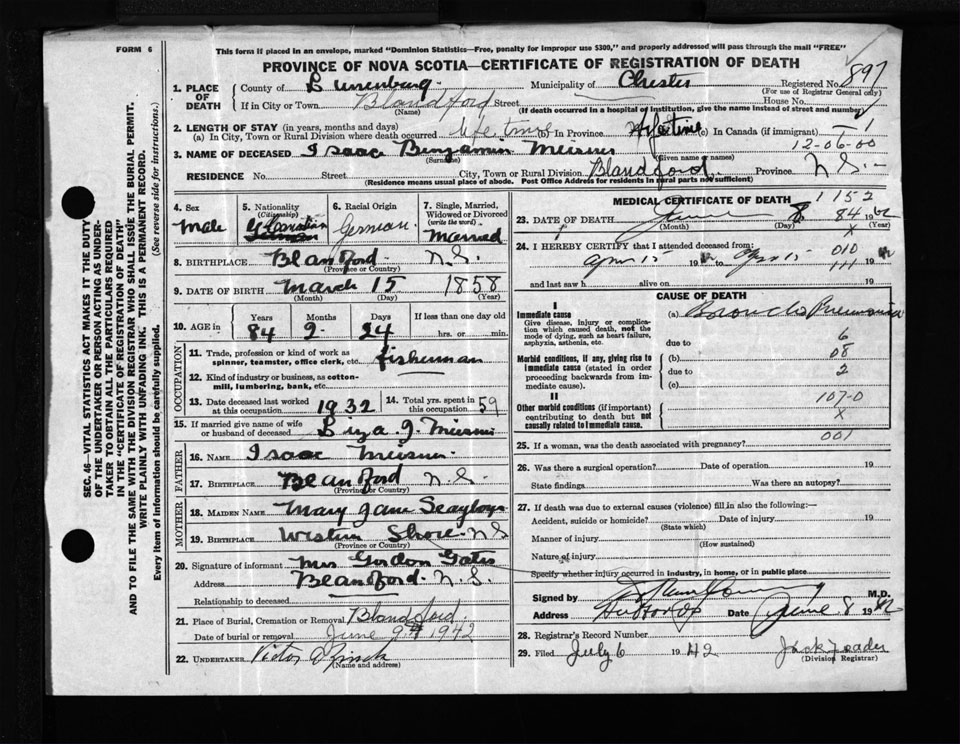 FORM 6
This form if placed in an envelope, marked "Dominion Statistics—Free, penalty for improper use $300," and properly addressed will pass through the mail "FREE"
PROVINCE OF NOVA SCOTIA—CERTIFICATE OF REGISTRATION OF DEATH
SEC. 46—VITAL STATISTICS ACT MAKES IT THE DUTY
OF THE UNDERTAKER OR PERSON ACTING AS UNDER-
TAKER TO OBTAIN ALL THE PARTICULARS REQUIRED
IN THE "CERTIFICATE OF REGISTRATION OF DEATH"
AND TO FILE THE SAME WITH THE DIVISION REGISTRAR WHO SHALL ISSUE THE BURIAL PERMIT.
WRITE PLAINLY WITH UNFADING INK. THIS IS A PERMANENT RECORD.
Every item of information should be carefully supplied. (See reverse side for instructions.)
1. PLACE OF DEATH County of Lunenburg Municipality of Chester Registered No. 897
(For use of Registrar General only)
If in City or Town Blandford Street House No.
(Name) (If death occurred in a hospital of institution, give the name instead of street and number)
2. LENGTH OF STAY (in years, months and days)
(a) In City, Town or Rural Division where death occurred life time (b) In Province life time (c) In Canada (if immigrant)
12-06-00
3. NAME OF DECEASED Isaac Benjamin Meisner
(Surname) (Given name or names)
RESIDENCE No. Street City, Town or Rural Division Blandford Province N.S.
(Residence means usual place of abode. Post Office Address for residents in rural parts not sufficient)
4. Sex Male
5. Nationality (Citizenship) Canadian
6. Racial Origin German
7. Single, Married, Widowed or Divorced (write the word) Married
8. BIRTHPLACE Blandford N.S.
(Province or Country)
9. DATE OF BIRTH March 15 1858
(Month) (Day) (Year)
10. AGE in Years Months Days If less than one day
84 2 24 hrs. or min.
OCCUPATION
11. Trade, profession or kind of work as spinner, teamster, office clerk, etc. fisherman
12. Kind of industry or business, as cotton-mill, lumbering, bank, etc.
13. Date deceased last worked at this occupation 1932
14. Total yrs. spent in this occupation 59
15. If married give name of wife or husband of deceased Liza J. Meisner
FATHER
16. NAME Isaac Meisner
17. BIRTHPLACE Blandford N.S.
(Province or Country)
MOTHER
18. MAIDEN NAME Mary Jane
19. BIRTHPLACE Western Shore N.S
(Province or Country)
20. Signature of informant Mrs Gordon Gates
Address Blandford. N.S.
Relationship to deceased
21. Place of Burial, Cremation or Removal Blandford
Date of burial or removal June 9th 1942
22. UNDERTAKER Victor
MEDICAL CERTIFICATE OF DEATH
1152
23. DATE OF DEATH June 8 84 1942
(Month) (Day) (Year)
X
24. I HEREBY CERTIFY that I attended deceased from:
010
April 15 19 to April 15 19
111
and last saw h alive on 19
CAUSE OF DEATH
I
Immediate cause
Give disease, injury or complication which caused death, not the mode of dying, such as heart failure, asphyxia, asthenia, etc.
(a) Broncho Pneumonia
due to 6
Morbid conditions, if any, giving rise to immediate cause (stated in order proceeding backwards from immediate cause).
(b) 08
due to 2
(c)
II
Other morbid conditions (if important) contributing to death but not causally related to immediate cause.
107-0
X
001
25. If a woman, was the death associated with pregnancy?
26. Was there a surgical operation? Date of operation 19
State findings Was there an autopsy?
27. If death was due to external causes (violence) fill in also the following:—
Accident, suicide or homicide? Date of injury 19
(State which)
Manner of injury
(How sustained)
Nature of injury
Specify whether injury occurred in industry, in home, or in public place
Signed by M.D.
Address Date June 8 1942
28. Registrar's Record Number
29. Filed July 6 1942 Jack Feader
(Division Registrar)